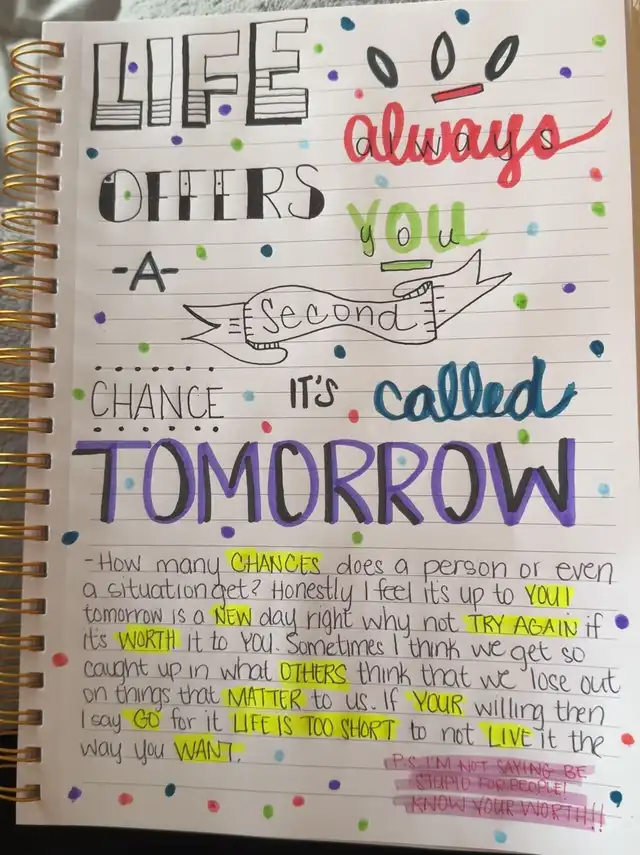 LIFE always
OFFERS you
-A-
Second
CHANCE IT'S called
TOMORROW
-How many CHANCES does a person or even
a situation get? Honestly I feel it's up to YOU!
tomorrow is a NEW day right why not TRY AGAIN if
it's WORTH it to YOU. Sometimes I think we get so
caught up in what OTHERS think that we lose out
on things that MATTER to us. If YOUR willing then
I say GO for it LIFE IS TOO SHORT to not LIVE it the
way you WANT.
P.S I'M NOT SAYING BE
STUPID FOR PEOPLE!
KNOW YOUR WORTH!!